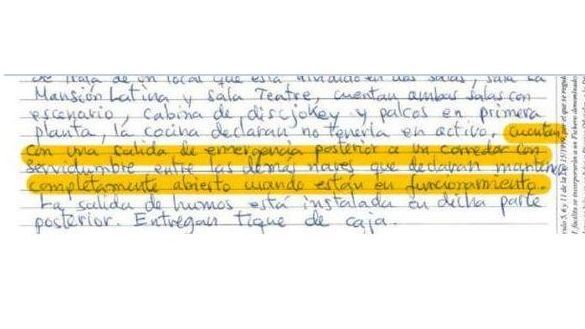 se trata de un local que está dividido en dos salas, sala La
Mansión Latina y sala Teatre, cuentan ambas salas con
escenario, cabina de discjokey y palcos en primera
planta, la cocina declaran no tenerla en activo, cuentan
con una salida de emergencia posterior a un corredor con
servidumbre entre las demás naves que declaran mantener
completamente abierto cuando están en funcionamiento.
La salida de humos está instalada en dicha parte
posterior. Entregan tique de caja.